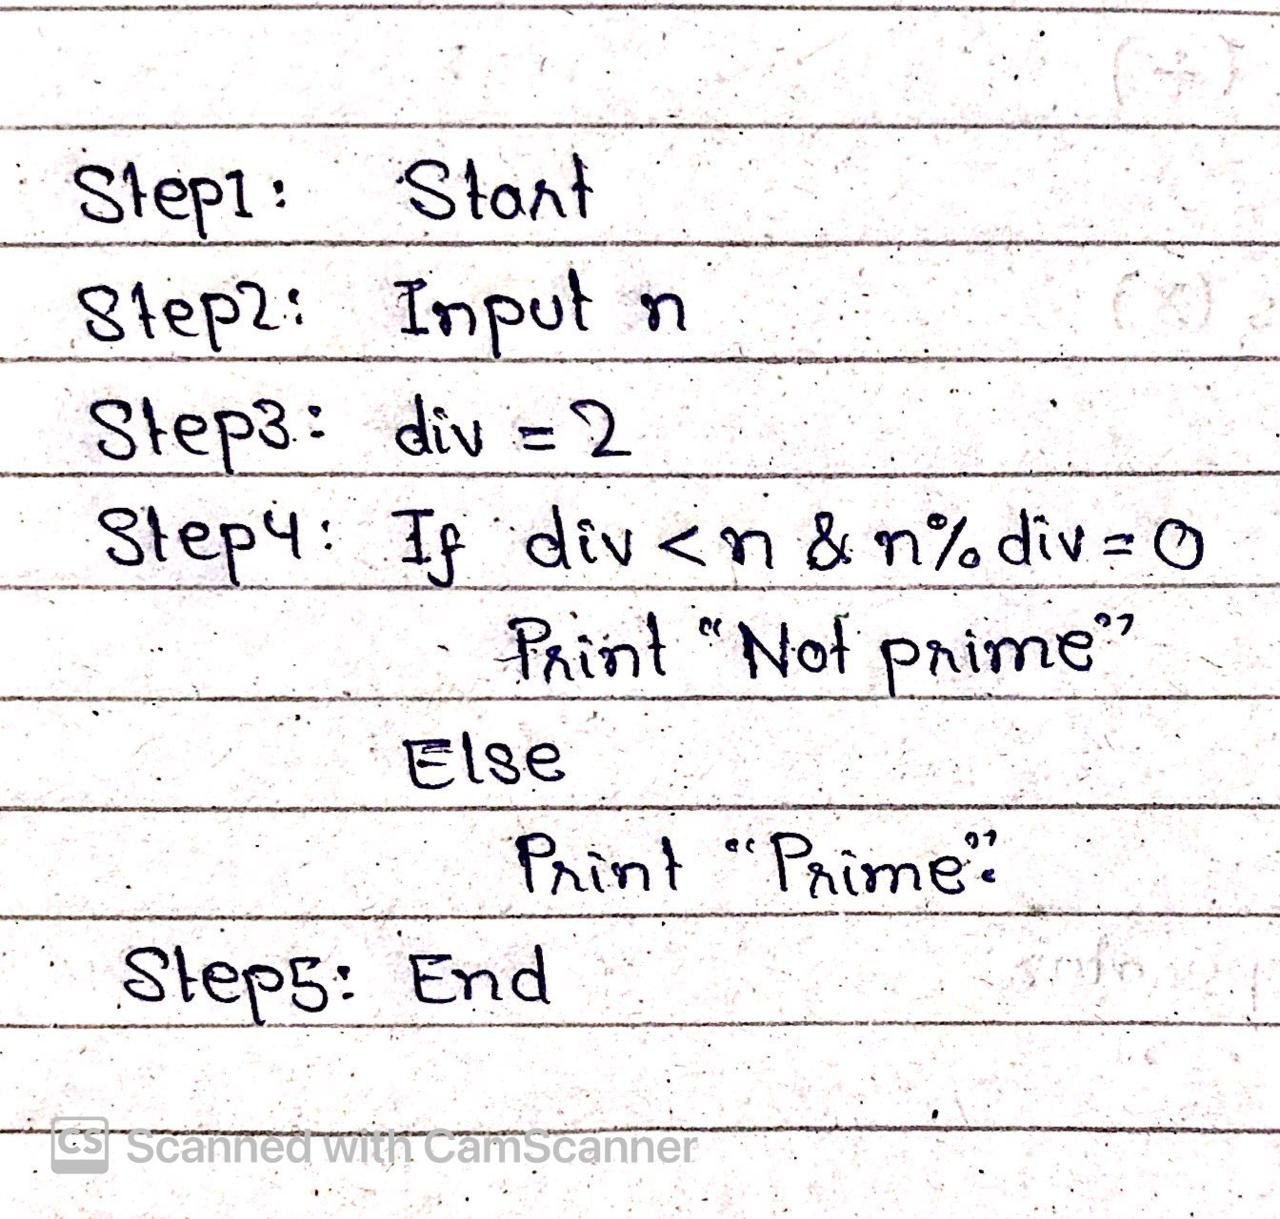 Step1: Start
Step2: Input n
Step3: div = 2
Step4: If div < n & n% div = 0
Print "Not prime"
Else
Print "Prime".
Step5: End
CS Scanned with CamScanner